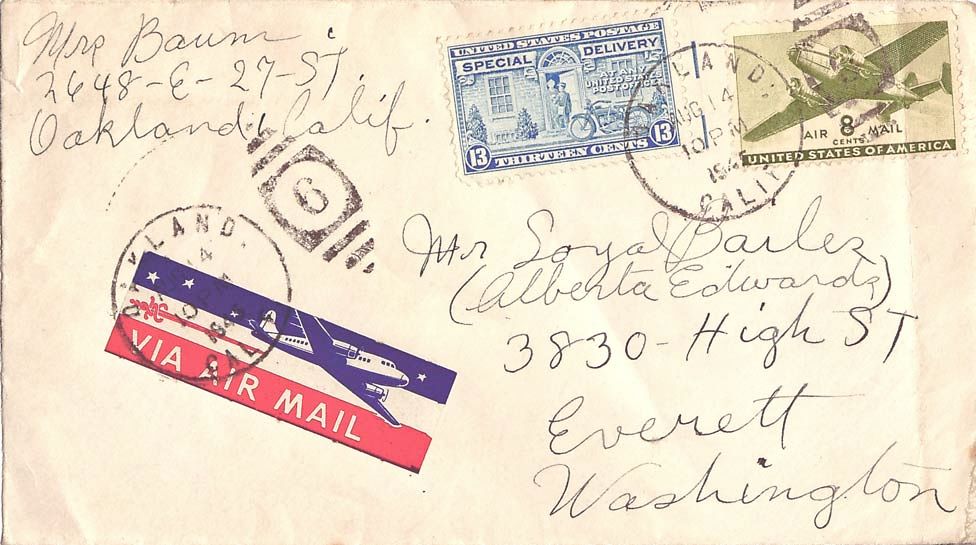 Mrs Baum
2648-E-27-ST.
Oakland, Calif.
UNITED STATES POSTAGE
SPECIAL DELIVERY
AT ANY
UNITED STATES
POST OFFICE
13 THIRTEEN CENTS 13
AIR 8 MAIL
CENTS
UNITED STATES OF AMERICA
OAKLAND.
AUG 14
10 PM
CALIF
6
OAKLAND.
14
10 PM
CALIF
VIA AIR MAIL
Mr Loyal
(Alberta Edwards)
3830-High ST
Everett
Washington